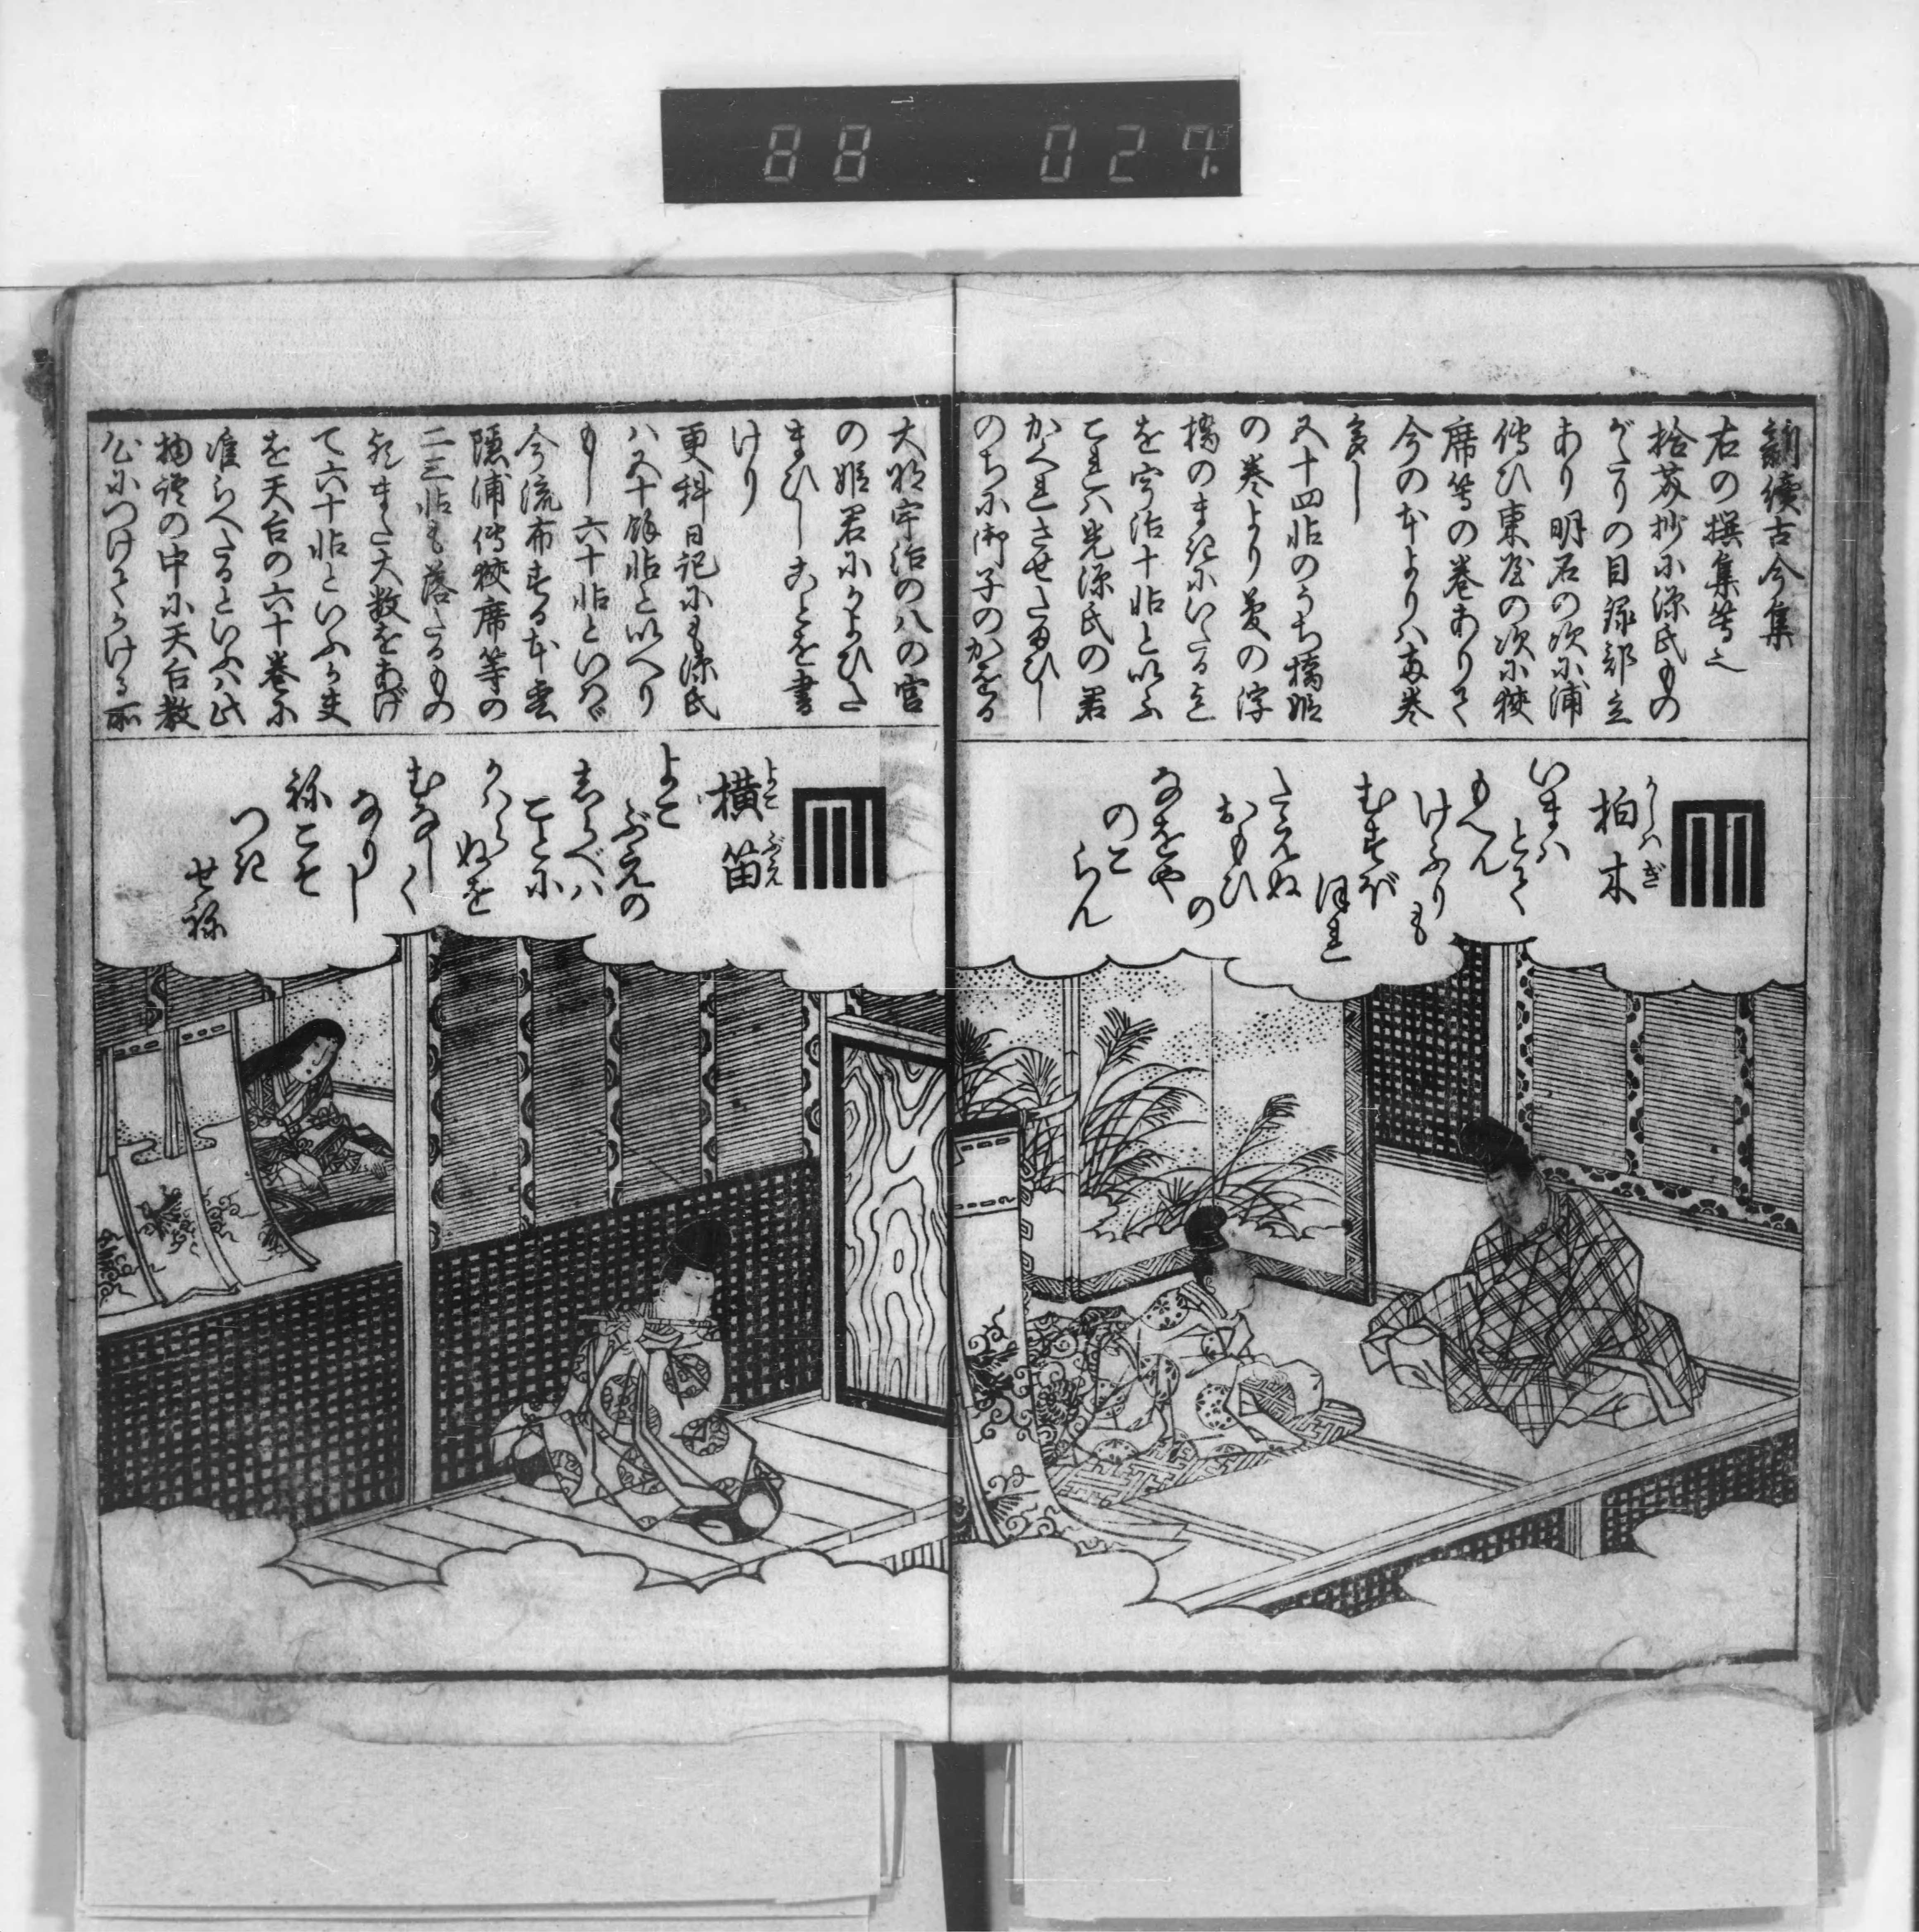 88 027
新續古今集
右の撰集等之
拾芥抄に源氏もの
がたりの目録部立
あり明石の次に浦
傳ひ東屋の次に狭
席等の巻ありて
今の本よりハ両巻
多し
五十四帖のうち橋姫
の巻より夢の浮
橋のまきにいたるを
を宇治十帖と以ふ
これハ光源氏の君
かくれさせたまひし
のちに御子のかをる
柏木
かしハぎ
いまハ
とて
もへん
けふりも
むすぼ
ほれ
たえぬ
おもひ
の
なをや
のこ
らん
大将宇治の八の宮
の姫君にかよひた
まひしことを書
けり
更科日記にも源氏
ハ五十餘帖と以へり
もし六十帖といへバ
今流布する本雲
隠浦傳狭席等の
二三帖も落たるもの
歟また大数をあげ
て六十帖といふか実
を天台の六十巻に
准らへたるといふハ此
物語の中に天台教
心につけてかける所
横笛
よこぶえ
よこ
ぶえの
志らべハ
ことに
かハらぬを
むなしく
なりし
祢こそ
つき
せ祢